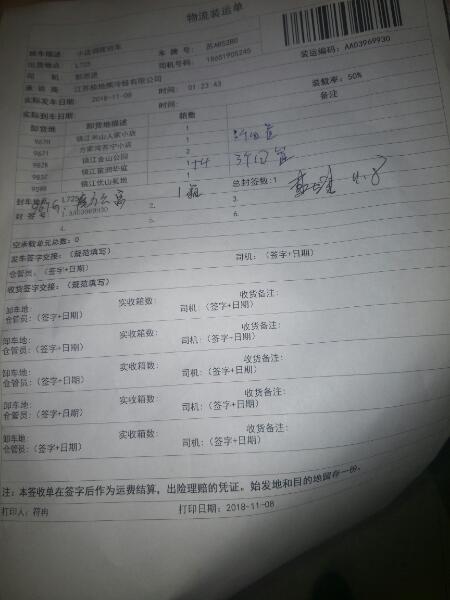 物流装运单
装车描述 小店调度班车 车牌号: 苏AB52B0
出货地点 L725 司机号码: 18651905245
司机 装运编码: AA03969930
承运商 江苏极地熊冷链有限公司
实际发车日期 2018-11-08 时间: 01:23:43 装载率: 50%
实际到车日期 时间: 备注
卸货地 卸货地描述 箱数
9620 镇江米山人家小店 1
9621 方家湾苏宁小店 1
9628 镇江金山公园 1
镇江富润华庭 1
镇江优山美地 1
1箱
封车地点 L725 总封签数: 1
封签号 1. AA03969930 2. 3.
4. 5. 6.
空承载单元总数: 0
发车签字交接: (规范填写)
仓管员: (签字+日期) 司机: (签字+日期)
收货签字交接: (规范填写)
卸车地: 实收箱数: 收货备注:
仓管员: (签字+日期) 司机: (签字+日期)
卸车地: 实收箱数: 收货备注:
仓管员: (签字+日期) 司机: (签字+日期)
卸车地: 实收箱数: 收货备注:
仓管员: (签字+日期) 司机: (签字+日期)
卸车地: 实收箱数: 收货备注:
仓管员: (签字+日期) 司机: (签字+日期)
卸车地: 实收箱数: 收货备注:
仓管员: (签字+日期) 司机: (签字+日期)
注: 本签收单在签字后作为运费结算, 出险理赔的凭证。始发地和目的地留存一份。
打印人: 符冉 打印日期: 2018-11-08